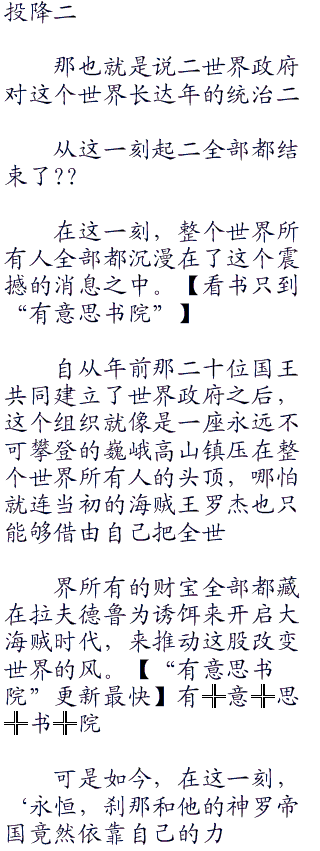 投降二
那也就是说二世界政府
对这个世界长达年的统治二
从这一刻起二全部都结
束了??
在这一刻，整个世界所
有人全部都沉漫在了这个震
撼的消息之中。【看书只到
“有意思书院”】
自从年前那二十位国王
共同建立了世界政府之后，
这个组织就像是一座永远不
可攀登的巍峨高山镇压在整
个世界所有人的头顶，哪怕
就连当初的海贼王罗杰也只
能够借由自己把全世
界所有的财宝全部都藏
在拉夫德鲁为诱饵来开启大
海贼时代，来推动这股改变
世界的风。【“有意思书
院”更新最快】有╬意╬思
╬书╬院
可是如今，在这一刻，
‘永恒，刹那和他的神罗帝
国竟然依靠自己的力